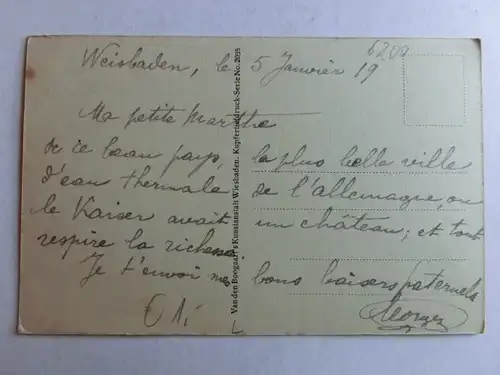 6200
Weisbaden, le 5 Janvier 19
Ma petite Marthe
de ce beau pays, la plus belle ville
d'eau thermale de l'allemagne, ou
le Kaiser avait un château; et tout
respire la richesse
Je t'envoi mes bons baisers paternels
Georges
€ 1,-
Van den Boogaart's Kunstanstalt Wiesbaden. Kupfertiefdruck-Serie No. 205